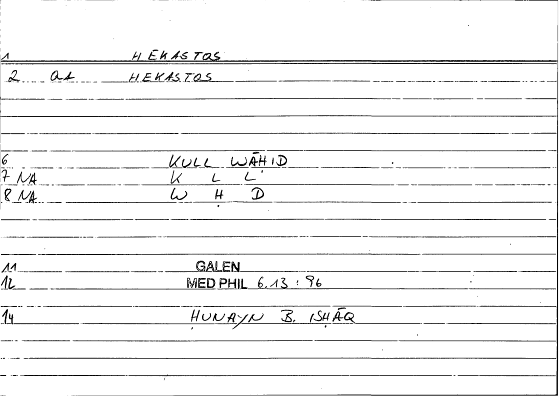 1 HEKASTOS
2 QA HEKASTOS
6 KULL WĀḤID
7 NA K L L
8 NA W Ḥ D
11 GALEN
12 MED PHIL 6.13 : 96
14 ḤUNAYN B. ISḤĀQ